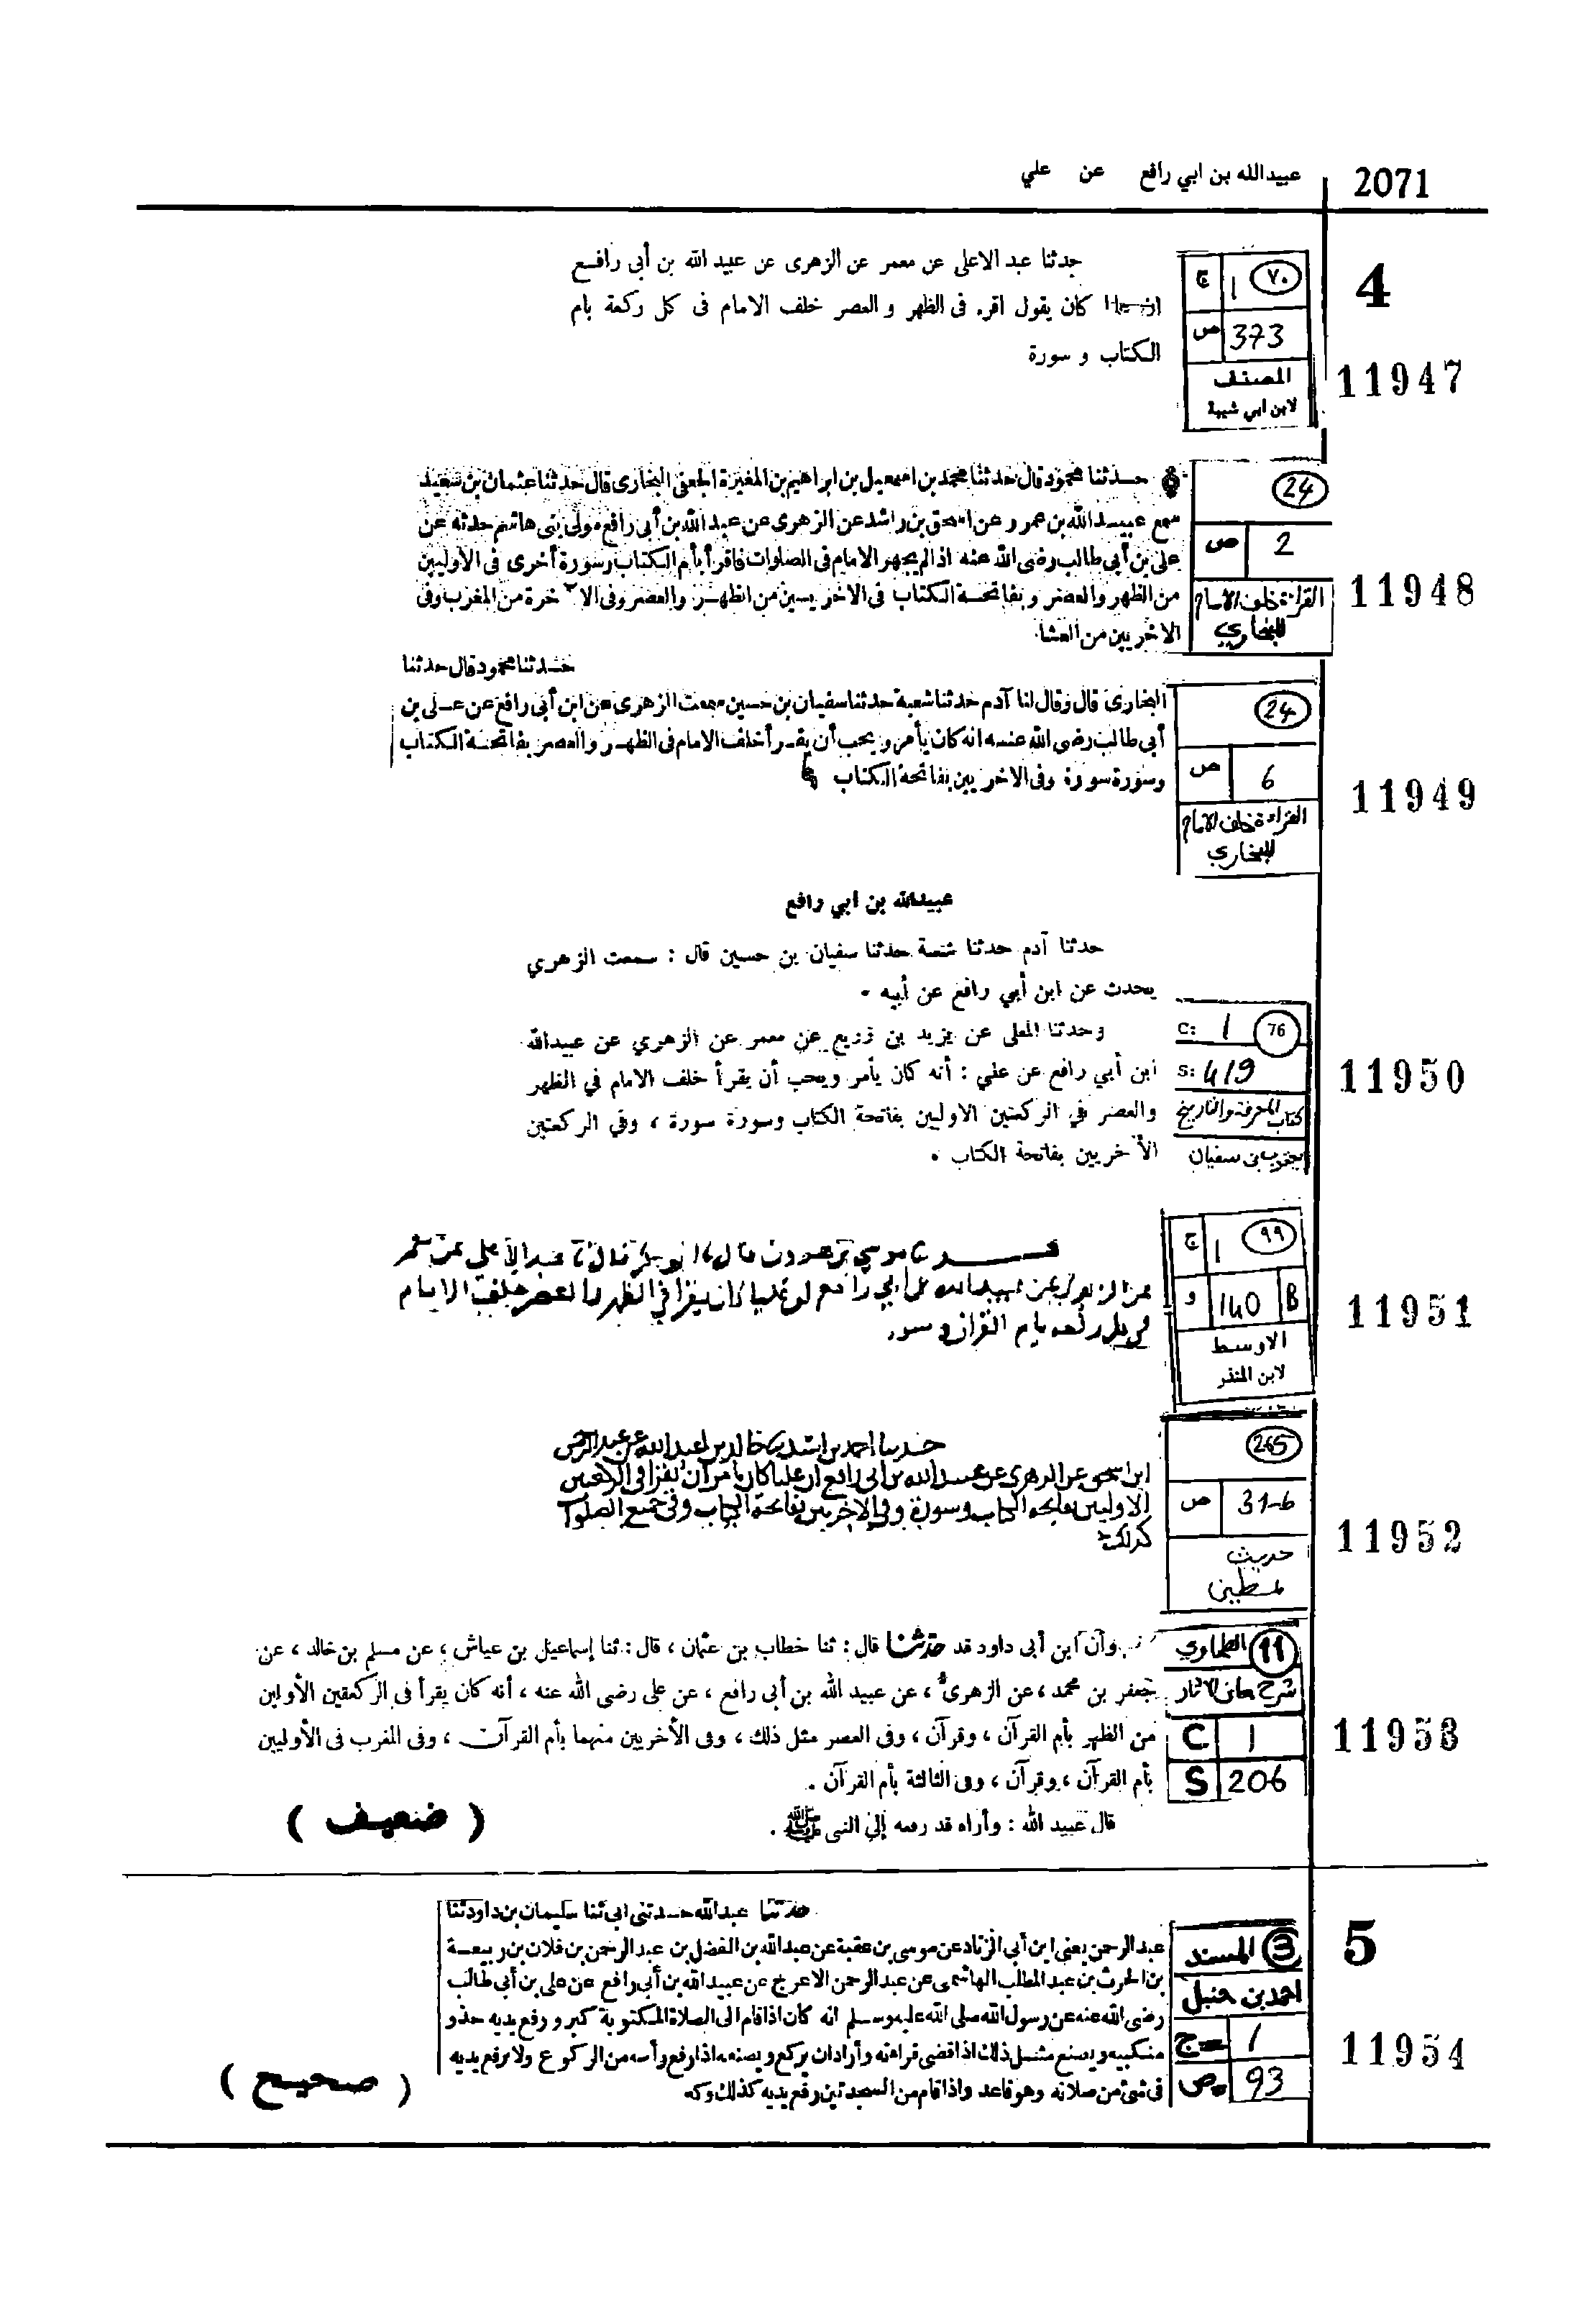 2071
عبيدالله بن ابي رافع عن علي
4
11947
٧٠ 1 ج
373 ص
المصنف
لابن ابي شيبة
حدثنا عبد الاعلى عن معمر عن الزهرى عن عبيد الله بن أبى رافع
كان يقول اقر. فى الظهر و العصر خلف الامام فى كل ركعة بام
الكتاب و سورة
11948
24
2 ص
القراءة خلف الامام
للبخاري
حدثنا محمود قال حدثنا محمد بن اسمعيل بن ابراهيم بن المغيرة الجعفى البخارى قال حدثنا عثمان بن سعيد
سمع عبيد الله بن عمرو عن اسحق بن راشد عن الزهرى عن عبد الله بن أبى رافع مولى بنى هاشم حدثه عن
على بن أبى طالب رضى الله عنه اذا لم يجهر الامام فى الصلوات فاقرأ بأم الكتاب وسورة أخرى فى الأوليين
من الظهر والعصر و بفاتحة الكتاب فى الاخريين من الظهر والعصر وفى الآخرة من المغرب وفى
الاخريين من العشاء
11949
24
6 ص
القراءة خلف الامام
للبخاري
حدثنا محمود قال حدثنا
البخارى قال وقال لنا آدم حدثنا شعبة حدثنا سفيان بن حسين سمعت الزهرى عن ابن أبى رافع عن على بن
أبى طالب رضى الله عنه انه كان يأمر و يحب أن يقرأ خلف الامام فى الظهر والعصر بفاتحة الكتاب
وسورة سورة وفى الاخريين بفاتحة الكتاب
عبيدالله بن ابي رافع
حدثنا آدم حدثنا شعبة حدثنا سفيان بن حسين قال : سمعت الزهري
يحدث عن ابن أبي رافع عن أبيه .
11950
C: 1 76
S: 419
كتاب المعرفة والتاريخ
يعقوب بن سفيان
وحدثنا المعلى عن يزيد بن زريع عن معمر عن الزهري عن عبيدالله
ابن أبي رافع عن علي : أنه كان يأمر ويحب أن يقرأ خلف الامام في الظهر
والعصر في الركعتين الاوليين بفاتحة الكتاب وسورة سورة ، وفي الركعتين
الأخريين بفاتحة الكتاب .
11951
٩٩ 1 ج
B 140 و
الاوسط
لابن المنذر
موسى بن هرون قال ابو بكر قال عبد الاعلى عن معمر
عن الزهري عن عبيد الله بن ابي رافع ان عليا كان يقرا في الظهر والعصر خلف الامام
في كل ركعه بام القران و سور
11952
265
31-6 ص
حديث
حدثنا احمد بن خالد بن عبد الله عن عبد الرحمن
ابن اسحق عن الزهرى عن عبيد الله بن ابى رافع ان عليا كان يامر ان يقرا فى الركعتين
الاوليين بفاتحة الكتاب وسورة وفى الاخريين بفاتحة الكتاب وفى جميع الصلوات
كذلك
11953
11 الطحاوي
شرح معاني الاثار
C 1
S 206
وأن ابن أبى داود قد حدثنا قال : ثنا خطاب بن عثمان ، قال : ثنا إسماعيل بن عياش ، عن مسلم بن خالد ، عن
جعفر بن محمد ، عن الزهرى ، عن عبيد الله بن أبى رافع ، عن على رضى الله عنه ، أنه كان يقرأ فى الركعتين الأوليين
من الظهر بأم القرآن ، وقرآن ، وفى العصر مثل ذلك ، وفى الأخريين منهما بأم القرآن ، وفى المغرب فى الأوليين
بأم القرآن ، وقرآن ، وفى الثالثة بأم القرآن .
قال عبيد الله : وأراه قد رفعه إلى النبى ﷺ .
( ضعيف )
5
11954
3 المسند
احمد بن حنبل
1 ج
93 ص
حدثنا عبدالله حدثنى ابى ثنا سليمان بن داود ثنا
عبد الرحمن يعنى ابن أبى الزناد عن موسى بن عقبة عن عبد الله بن الفضل بن عبد الرحمن بن فلان بن ربيعة
بن الحرث بن عبد المطلب الهاشمى عن عبد الرحمن الاعرج عن عبيد الله بن أبى رافع عن على بن أبى طالب
رضى الله عنه عن رسول الله صلى الله عليه وسلم انه كان اذا قام الى الصلاة المكتوبة كبر و رفع يديه حذو
منكبيه و يصنع مثل ذلك اذا قضى قراءته وأراد ان يركع و يصنعه اذا رفع رأسه من الركوع ولا يرفع يديه
فى شئ من صلاته وهو قاعد واذا قام من السجدتين رفع يديه كذلك وكبر
( صحيح )